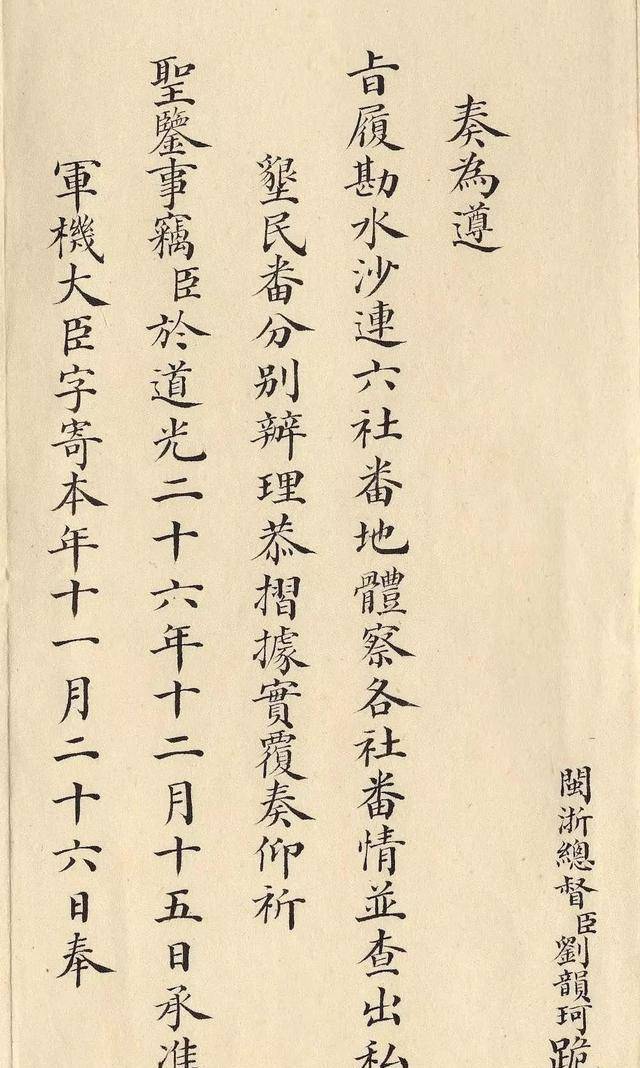 閩浙總督臣劉韻珂跪
奏為遵
旨履勘水沙連六社番地體察各社番情並查出私
墾民番分別辦理恭摺據實覆奏仰祈
聖鑒事竊臣於道光二十六年十二月十五日承准
軍機大臣字寄本年十一月二十六日奉